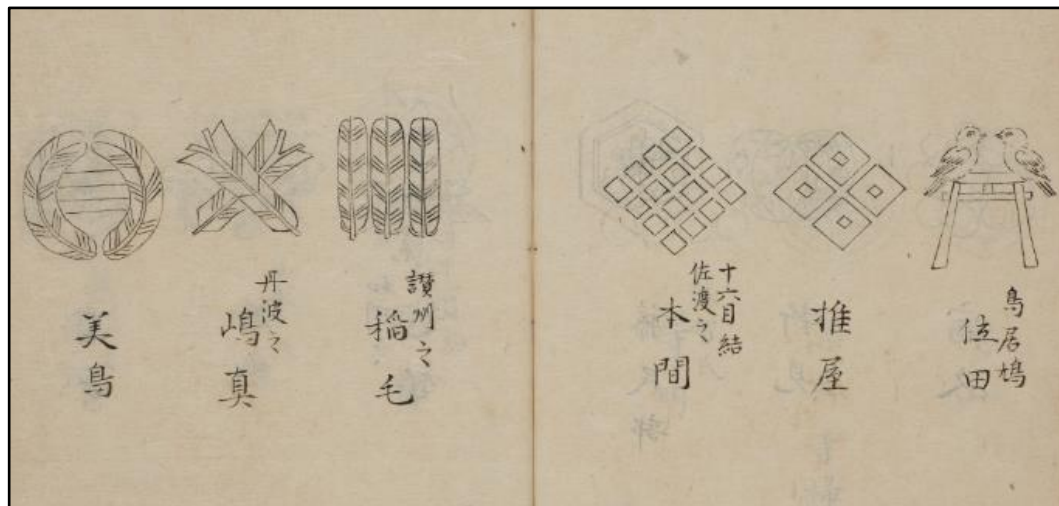 鳥居鳩
位田
推屋
十六目結
佐渡之
本間
讚州之
稲毛
丹波之
嶋真
美島